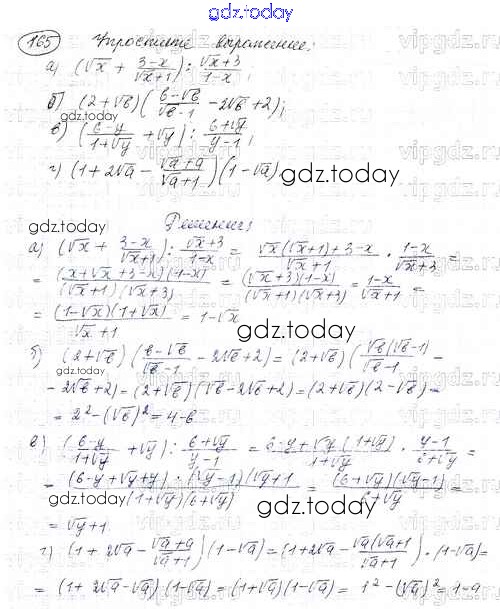 gdz.today
165 Упростите выражение:
а) (√x + (3-x)/(√x+1)) : (√x+3)/(1-x)
б) (2+√b)((b-√b)/(√b-1) - 2√b + 2);
в) ((6-y)/(1+√y) + √y) : (6+√y)/(y-1);
г) (1+2√a - (√a+a)/(√a+1))(1-√a)
gdz.today
gdz.today
Решение:
а) (√x + (3-x)/(√x+1)) : (√x+3)/(1-x) = (√x(√x+1)+3-x)/(√x+1) · (1-x)/(√x+3) =
= ((x+√x+3-x)(1-x))/((√x+1)(√x+3)) = ((√x+3)(1-x))/((√x+1)(√x+3)) = (1-x)/(√x+1) =
= ((1-√x)(1+√x))/(√x+1) = 1-√x
gdz.today
б) (2+√b)((b-√b)/(√b-1) - 2√b+2) = (2+√b)((√b(√b-1))/(√b-1) -
- 2√b+2) = (2+√b)(√b-2√b+2) = (2+√b)(2-√b) =
= 2² - (√b)² = 4-b
gdz.today
в) ((6-y)/(1+√y) + √y) : (6+√y)/(y-1) = (6-y+√y(1+√y))/(1+√y) · (y-1)/(6+√y) =
= ((6-y+√y+y)·(√y-1)(√y+1))/((1+√y)(6+√y)) = ((6+√y)(√y-1))/(6+√y) =
gdz.today
gdz.today
= √y+1
г) (1+2√a - (√a+a)/(√a+1))(1-√a) = (1+2√a - (√a(√a+1))/(√a+1))·(1-√a) =
= (1+2√a-√a)(1-√a) = (1+√a)(1-√a) = 1² - (√a)² = 1-a